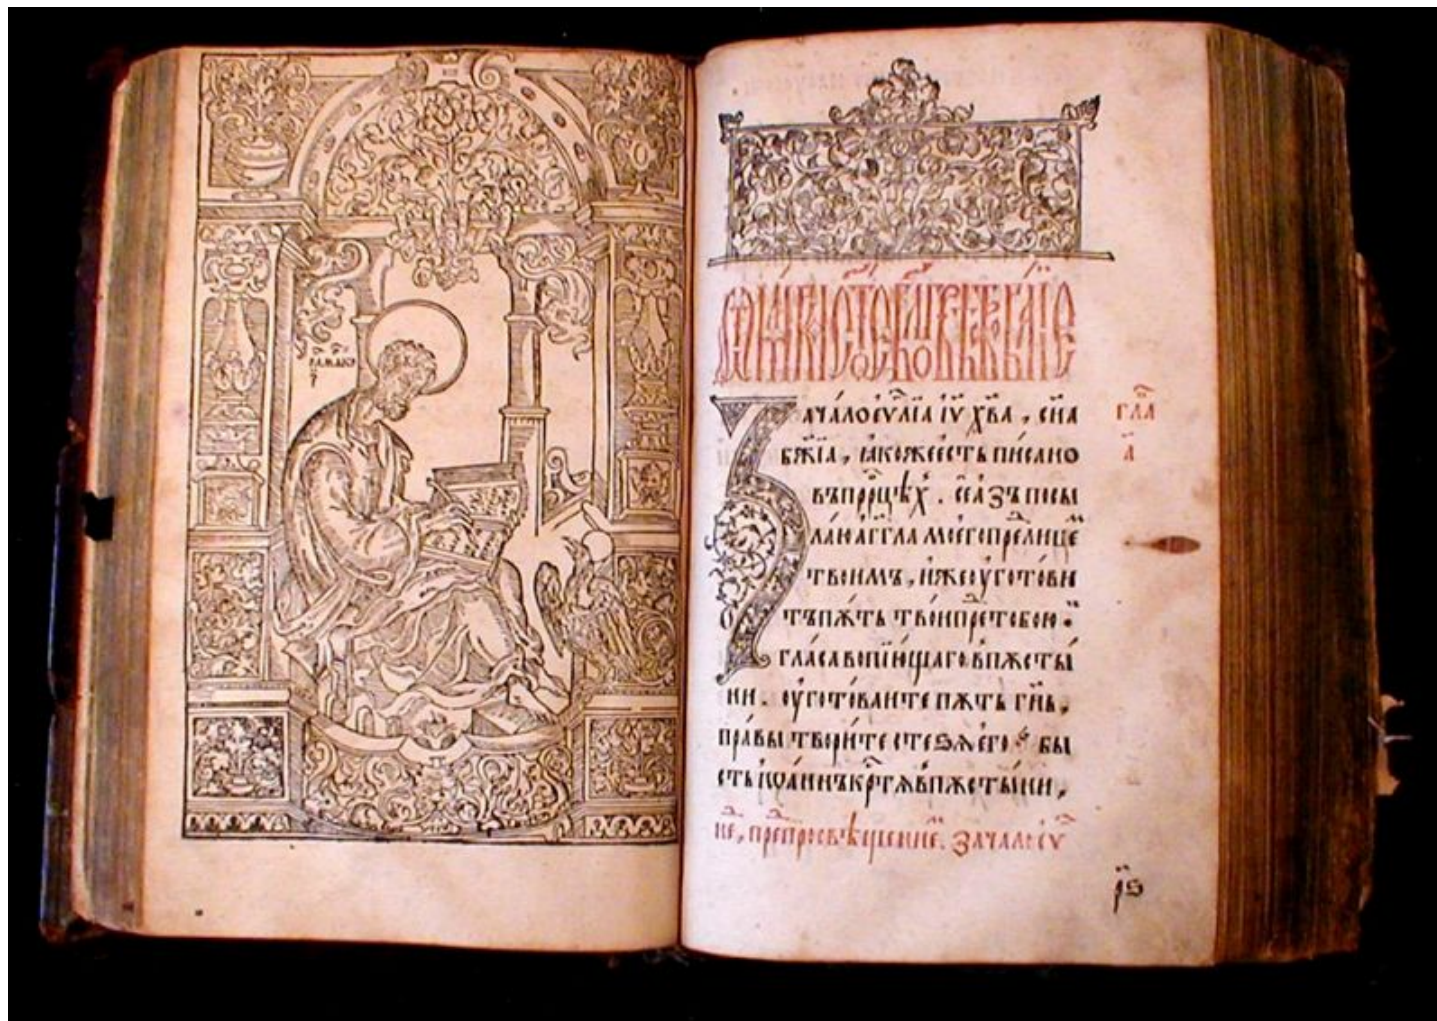 гл҃а
а҃
ачалоеѵⷢ҇лїа і҆ѵ҃ х҃ва , сн҃а
бж҃їа , ꙗкожеесть писано
въпрⷪ҇рцѣх . сеазъпосы
лаюаг҃гла моегопреⷣлице
твоимъ , ижеоуготови
тъпѫть твоипреⷣтобою .
гласавопїющаговпѫсты
ни . оуготоваите пѫть гн҃ь ,
правы творите стеѕѧего бы
сть іѡаннъкрⷭ҇тѧвпѫстыни ,
неⷣ , преⷣпросвѣщенїе . зачалоеѵⷢ҇
рѕ҃